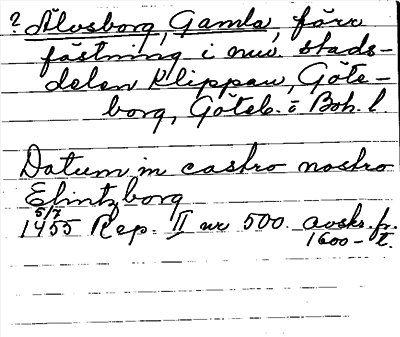 ? Älvsborg, Gamla, förr
fästning i nuv. stads-
delen Klippan, Göte-
borg, Göteb. o. Boh. l.
Datum in castro nostro
Elintzborg
5/7
1455 Rep. II nr 500. avskr. fr.
1600-t.